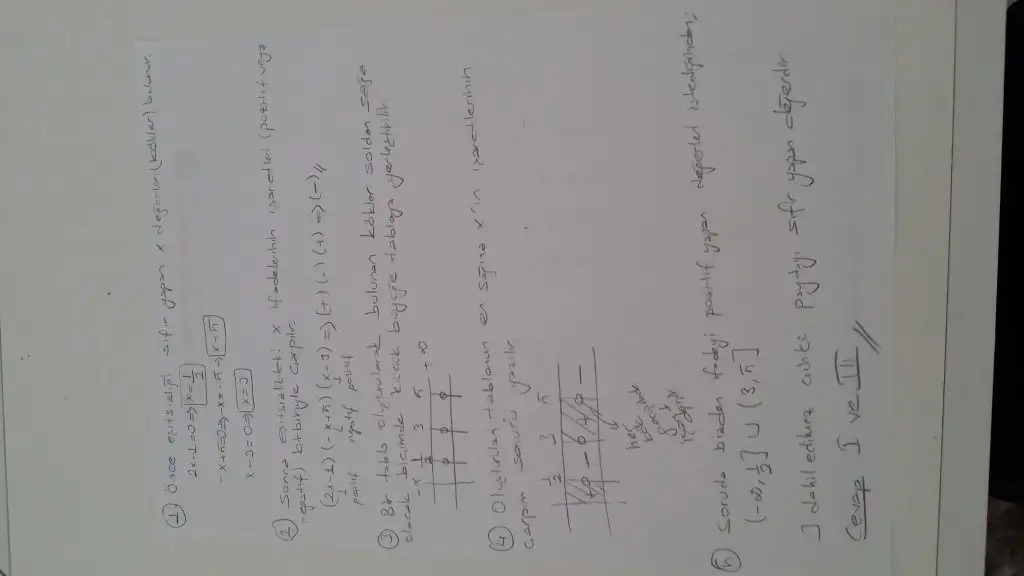 1 Önce eşitsizliği sıfır yapan x değerleri (kökler) bulunur.
2x-1=0 => x=1/2
-x+π=0 => -x=-π => x=π
x-3=0 => x=3
2 Sonra eşitsizlikteki x ifadelerinin işaretleri (pozitif veya
negatif) birbiriyle çarpılır.
(2x-1) (-x+π) (x-3) => (+) (-) (+) => (-) //
pozitif negatif pozitif
3 Bir tablo oluşturularak bulunan kökler soldan sağa
olacak biçimde küçük büyüğe tabloya yerleştirilir
-∞ 1/2 3 π +∞
4 Oluşturulan tablonun en sağına x'in işaretlerinin
çarpım sonucu yazılır.
1/2 3 π
+ - + -
her
kökte
işaret
değişir
5 Soruda bizden ifadeyi pozitif yapan değerleri istediğinden;
(-∞, 1/2] ∪ (3, π]
] dahil edilir çünkü paydayı sıfır yapan değerdir
Cevap I ve III //